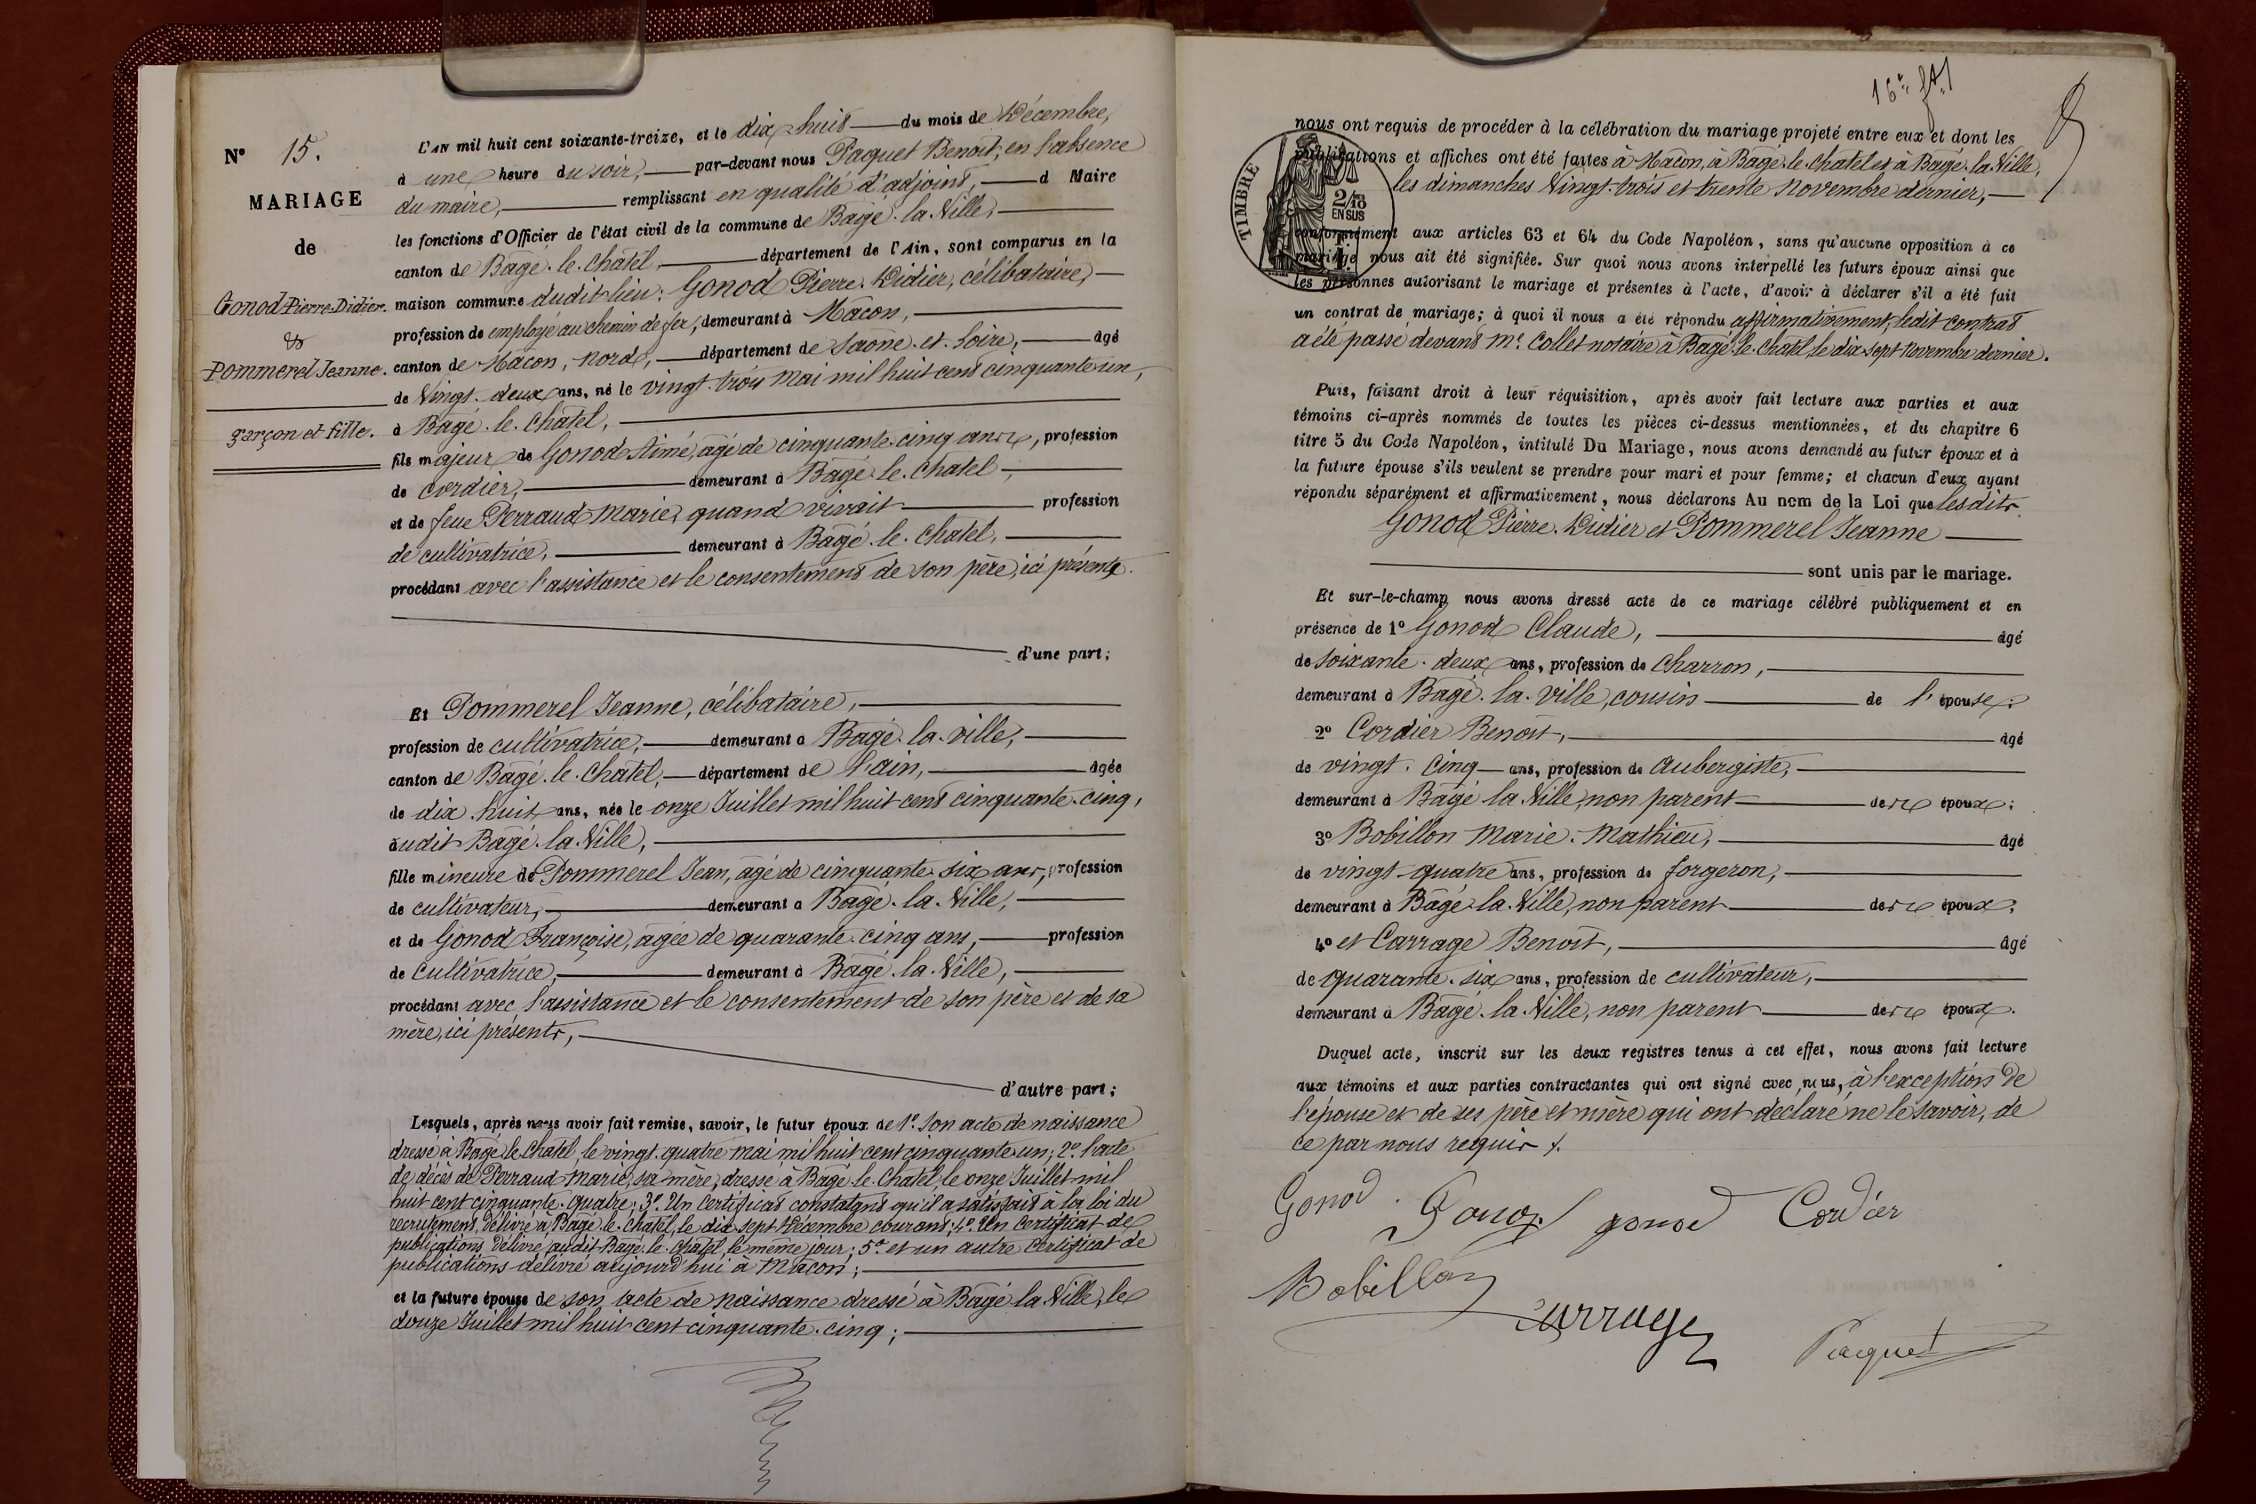 N° 15.
MARIAGE
de
Gonod Pierre-Didier.
&
Pommerel Jeanne.
garçon et fille.
L'AN mil huit cent soixante-treize, et le dix huit du mois de Décembre,
à une heure du soir, par-devant nous Paquet Benoît, en l'absence
du maire, remplissant en qualité d'adjoint, d Maire
les fonctions d'Officier de l'état civil de la commune de Bâgé-la-Ville,
canton de Bâgé-le-Châtel, département de l'Ain, sont comparus en la
maison commune dudit lieu: Gonod Pierre-Didier, célibataire,
profession de employé au chemin de fer, demeurant à Mâcon,
canton de Mâcon, nord, département de Saône-et-Loire, âgé
de Vingt-deux ans, né le vingt-trois Mai mil huit cent cinquante un,
à Bâgé-le-Châtel,
fils majeur de Gonod Aimé, âgé de cinquante-cinq ans, profession
de cordier, demeurant à Bâgé-le-Châtel,
et de feue Perraud Marie, quand vivait profession
de cultivatrice, demeurant à Bâgé-le-Châtel,
procédant avec l'assistance et le consentement de son père, ici présent.
d'une part;
Et Pommerel Jeanne, célibataire,
profession de cultivatrice, demeurant à Bâgé-la-Ville,
canton de Bâgé-le-Châtel, département de l'ain, âgée
de dix huit ans, née le onze Juillet mil huit cent cinquante-cinq,
audit Bâgé-la-Ville,
fille mineure de Pommerel Jean, âgé de cinquante-six ans, profession
de cultivateur, demeurant à Bâgé-la-Ville,
et de Gonod Françoise, âgée de quarante-cinq ans, profession
de cultivatrice, demeurant à Bâgé-la-Ville,
procédant avec l'assistance et le consentement de son père et de sa
mère, ici présents,
d'autre part;
Lesquels, après nous avoir fait remise, savoir, le futur époux de 1°. Son acte de naissance
dressé à Bâgé-le-Châtel, le vingt-quatre mai mil huit cent cinquante un; 2°. l'acte
de décès de Perraud Marie, sa mère, dressé à Bâgé-le-Châtel, le onze Juillet mil
huit cent cinquante-quatre; 3°. Un certificat constatant qu'il a satisfait à la loi du
recrutement, délivré à Bâgé-le-Châtel, le dix sept Décembre courant; 4°. Un certificat de
publications délivré audit Bâgé-le-Châtel, le même jour; 5°. et un autre certificat de
publications délivré aujourd'hui à Mâcon;
et la future épouse de son acte de naissance dressé à Bâgé-la-Ville, le
douze Juillet mil huit cent cinquante-cinq;
nous ont requis de procéder à la célébration du mariage projeté entre eux et dont les
publications et affiches ont été faites à Mâcon, à Bâgé-le-Châtel et à Bâgé-la-Ville,
les dimanches Vingt-trois et trente Novembre dernier,
TIMBRE
2/10
EN SUS
conformément aux articles 63 et 64 du Code Napoléon, sans qu'aucune opposition à ce
mariage nous ait été signifiée. Sur quoi nous avons interpellé les futurs époux ainsi que
les personnes autorisant le mariage et présentes à l'acte, d'avoir à déclarer s'il a été fait
un contrat de mariage; à quoi il nous a été répondu affirmativement, ledit contrat
a été passé devant Me. Collet notaire à Bâgé-le-Châtel, le dix sept Novembre dernier.
Puis, faisant droit à leur réquisition, après avoir fait lecture aux parties et aux
témoins ci-après nommés de toutes les pièces ci-dessus mentionnées, et du chapitre 6
titre 5 du Code Napoléon, intitulé Du Mariage, nous avons demandé au futur époux et à
la future épouse s'ils veulent se prendre pour mari et pour femme; et chacun d'eux ayant
répondu séparément et affirmativement, nous déclarons Au nom de la Loi que lesdits
Gonod Pierre-Didier et Pommerel Jeanne
sont unis par le mariage.
Et sur-le-champ nous avons dressé acte de ce mariage célébré publiquement et en
présence de 1° Gonod Claude, âgé
de soixante-deux ans, profession de charron,
demeurant à Bâgé-la-Ville, cousin de l'épouse;
2° Cordier Benoît, âgé
de vingt-cinq ans, profession de aubergiste,
demeurant à Bâgé-la-Ville, non parent des époux;
3° Bobillon Marie-Mathieu, âgé
de vingt-quatre ans, profession de forgeron,
demeurant à Bâgé-la-Ville, non parent des époux;
4° et Carrage Benoît, âgé
de quarante-six ans, profession de cultivateur,
demeurant à Bâgé-la-Ville, non parent des époux.
Duquel acte, inscrit sur les deux registres tenus à cet effet, nous avons fait lecture
aux témoins et aux parties contractantes qui ont signé avec nous, à l'exception de
l'épouse et de ses père et mère qui ont déclaré ne le savoir, de
ce par nous requis.
Gonod Gonod gonod Cordier
Bobillon
Carrage
Paquet